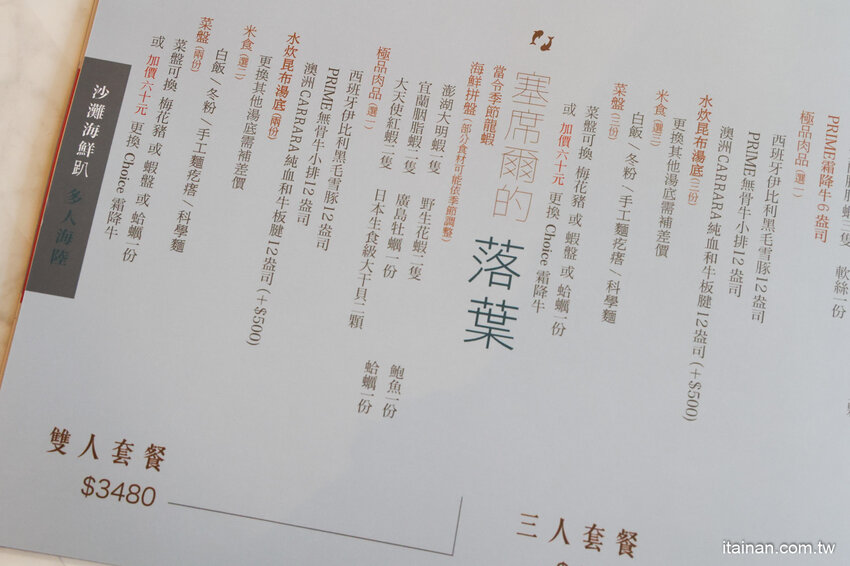 胭脂蝦三隻 軟絲一份
PRIME霜降牛6盎司
極品肉品(選一)
西班牙伊比利黑毛雪豚12盎司
PRIME無骨牛小排12盎司
澳洲CARRARA純血和牛板腱12盎司(+$500)
水炊昆布湯底(三份)
更換其他湯底需補差價
米食(選三)
白飯/冬粉/手工麵疙瘩/科學麵
菜盤(三份)
菜盤可換 梅花豬 或 蝦盤 或 蛤蠣一份
或 加價六十元 更換 Choice 霜降牛
三人套餐
塞席爾的 落葉
當令季節龍蝦
海鮮拼盤(部分食材可能依季節調整)
澎湖大明蝦一隻 野生花蝦二隻 鮑魚一份
宜蘭胭脂蝦二隻 廣島牡蠣一份 蛤蠣一份
大天使紅蝦二隻 日本生食級大干貝二顆
極品肉品(選一)
西班牙伊比利黑毛雪豚12盎司
PRIME無骨牛小排12盎司
澳洲CARRARA純血和牛板腱12盎司(+$500)
水炊昆布湯底(兩份)
更換其他湯底需補差價
米食(選二)
白飯/冬粉/手工麵疙瘩/科學麵
菜盤(兩份)
菜盤可換 梅花豬 或 蝦盤 或 蛤蠣一份
或 加價六十元 更換 Choice 霜降牛
雙人套餐
$3480
沙灘海鮮趴 多人海陸
itainan.com.tw